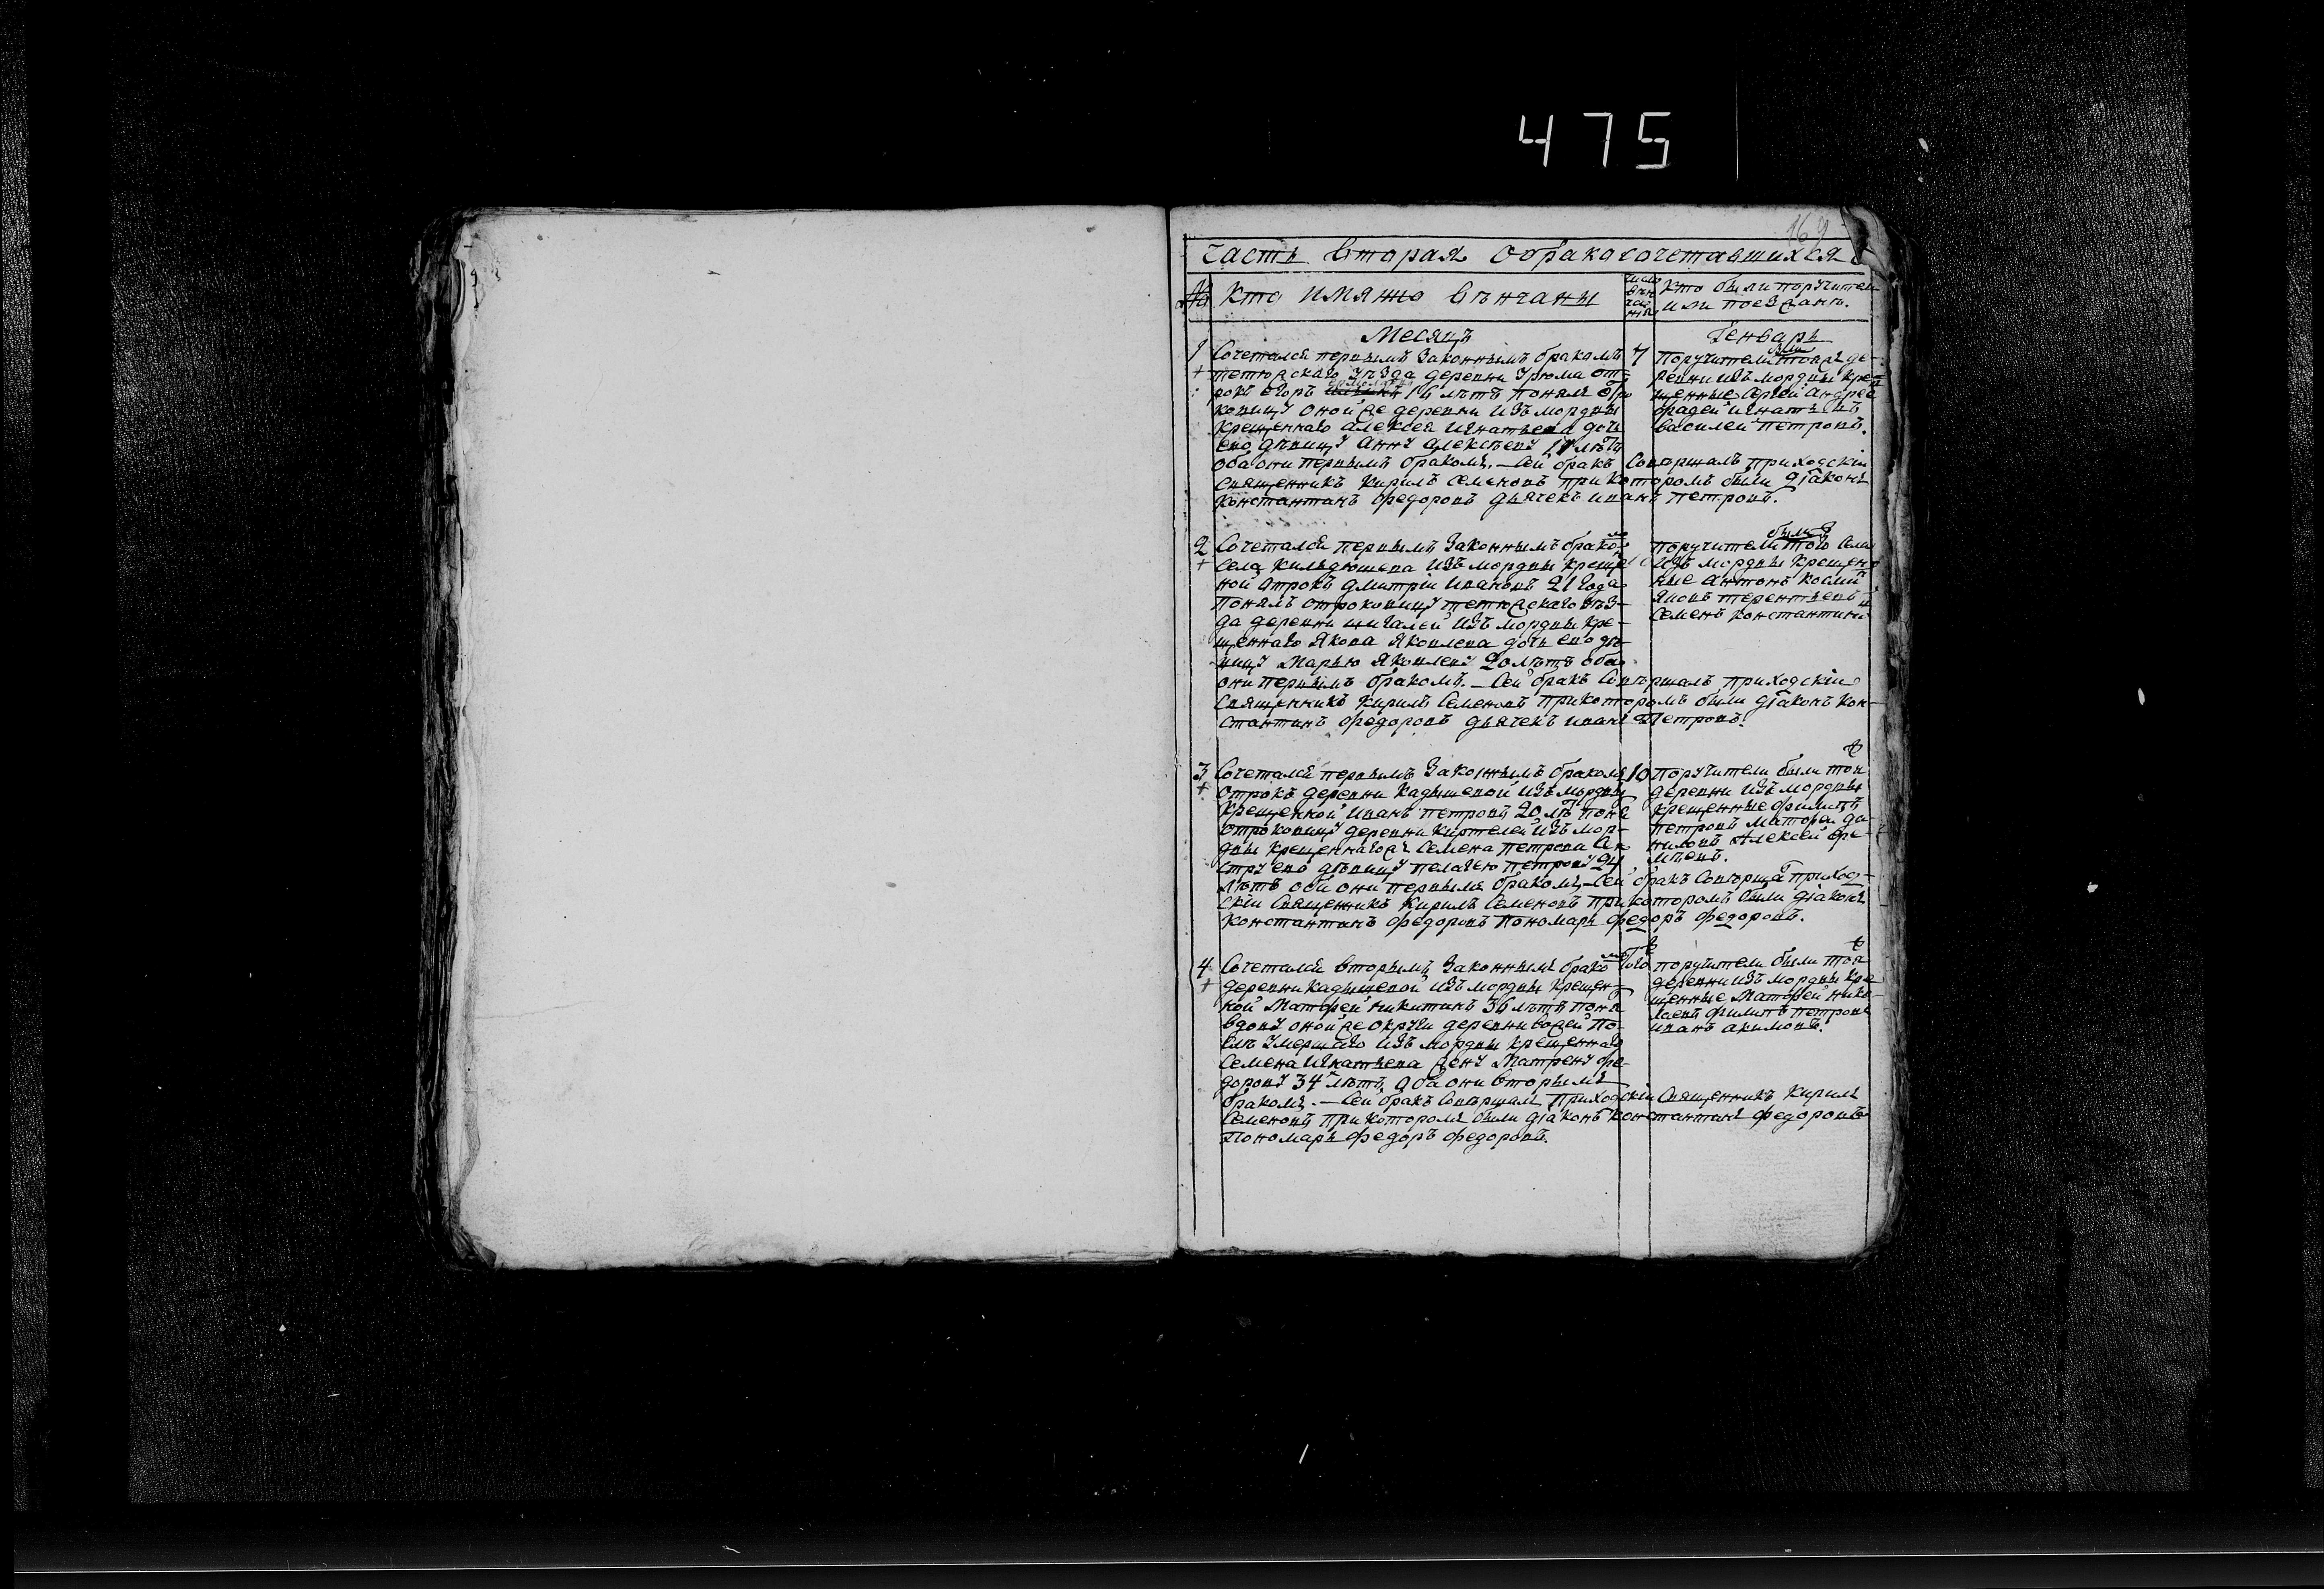 475
169
Часть вторая обракосочетавшихся
№ Кто имянно венчаны
число
вен
чан
ния
Кто были поручители
или поезжанѣ.
Месяцъ Генварь
1 Сочетался первымъ законнымъ бракомъ 7
тетюжскаго уѣзда деревни Урюма от-
рокъ егоръ лѣтъ понялъ отро
ковицу оной же деревни изъ мордвы
крещеннаго алексея игнатьева дочь
ево дѣвицу анну алексѣеву лѣтъ
оба они первымъ бракомъ. — Сей бракъ Совершалъ приходскій
Священникъ Кирилъ Семеновъ при которомъ были діаконъ
Константинъ федоровъ дьячекъ иванъ петровъ.
были
поручители тояже де-
ревни изъ мордвы кре-
щенные Сергей андрее
фадей игнатьевъ
василей петровъ.
2 Сочетался первымъ законнымъ бракомъ
Села кильдюшева изъ мордвы креще
ной отрокъ дмитріи ивановъ 21 года
понялъ отроковицу тетюжскаго уѣз-
да деревни шигалей изъ мордвы кре-
щеннаго якова яковлева дочь ево дѣ-
вицу марью яковлеву 20 лѣтъ оба
они первымъ бракомъ. — Сей бракъ Совершалъ приходскій
Священникъ Кирилъ Семеновъ при которомъ были діаконъ Кон-
стантинъ федоровъ дьячекъ иванъ Петровъ.
были
поручители того села
изъ мордвы крещен
ные антонъ
яковъ терентьевъ
Семенъ константинов
3 Сочетался первымъ законнымъ бракомъ 10
отрокъ деревни Кадышевой изъ мордвы
крещенной иванъ петровъ 20 лѣ поня
отроковицу деревни киртелей изъ мор-
двы крещеннаго Семена петрова Се
стру ево дѣвицу пелагею петрову 24
лѣтъ оба они первымъ бракомъ — Сей бракъ Совершалъ приход-
скіи Священникъ Кирилъ Семеновъ при которомъ были діаконъ
Константинъ федоровъ Пономарь федоръ федоровъ.
поручители были тоя
деревни изъ мордвы
крещенные филипъ
петровъ матфеи да
ниловъ Алексей
4 Сочетался вторымъ законнымъ бракомъ
деревни кадышевой изъ мордвы крещен-
ной Матфей никитинъ 36 лѣтъ поня
вдову оной же округи деревни
умершаго изъ мордвы крещеннаго
Семена игнатьева жену Матрену фе-
дорову 34 лѣтъ. Оба они вторымъ
бракомъ. — Сей бракъ Совершалъ Приходскіи Священникъ Кирилъ
Семеновъ при которомъ были діаконъ Константинъ федоровъ
Пономарь федоръ федоровъ.
поручители были тоя
деревни изъ мордвы кре
щенные Матфей нико-
лаевъ филипъ петровъ
иванъ акимовъ.